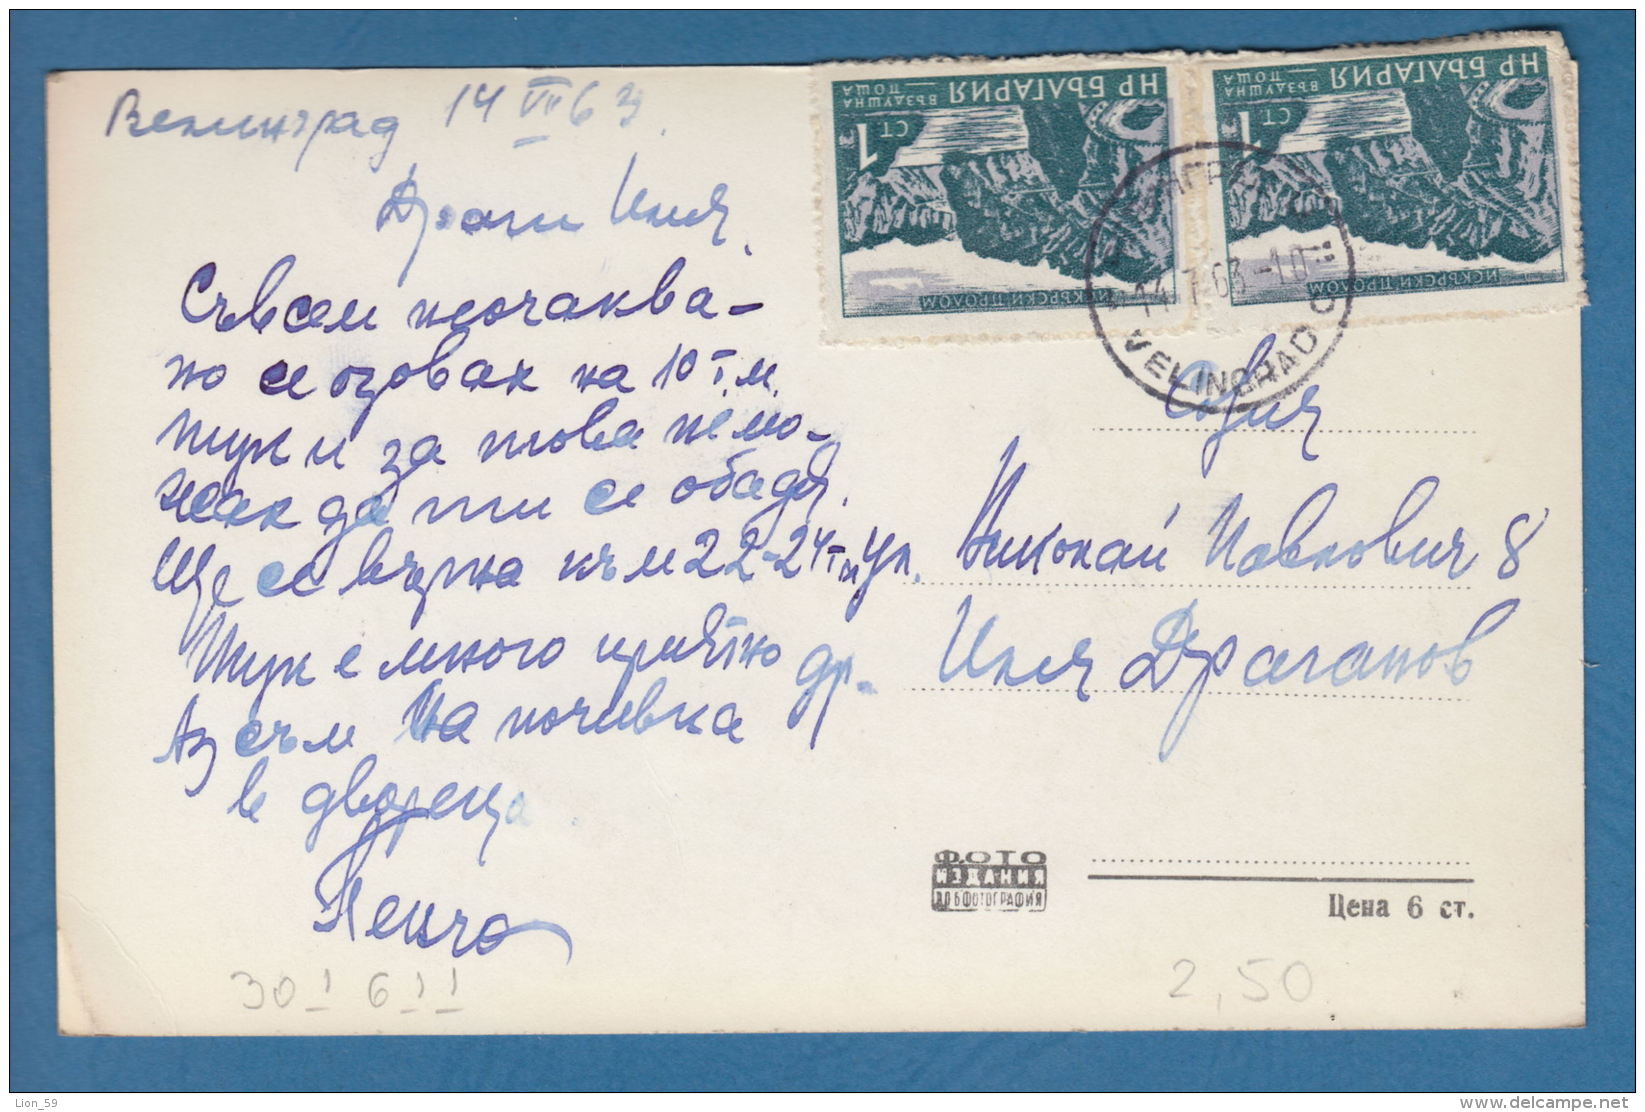 Велинград 14 VII 63.
Драги Илия,
Съвсем неочаква-
но се озовах на 10 т.м.
тук и за това не мо-
жах да ти се обадя.
Ще се върна към 22-24 т.м.
Тук е много приятно
Аз съм на почивка
в двореца.
Пенчо
НР БЪЛГАРИЯ
ВЪЗДУШНА ПОЩА
1 СТ.
ИСКЪРСКИ ПРОЛОМ
НР БЪЛГАРИЯ
ВЪЗДУШНА ПОЩА
1 СТ.
ИСКЪРСКИ ПРОЛОМ
14.7.63-10
VELINGRAD
София
ул. Николай Павлович 8
др. Илия Драганов
ФОТО
ИЗДАНИЯ
ДПБФОТОГРАФИЯ
Цена 6 ст.
2,50
Lion_59
www.delcampe.net